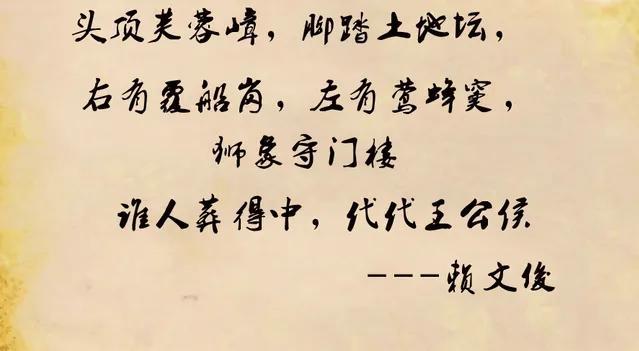 头顶芙蓉嶂，脚踏土地坛，
右有覆船岗，左有莺蜂窦，
狮象守门楼
谁人葬得中，代代王公侯
---赖文俊